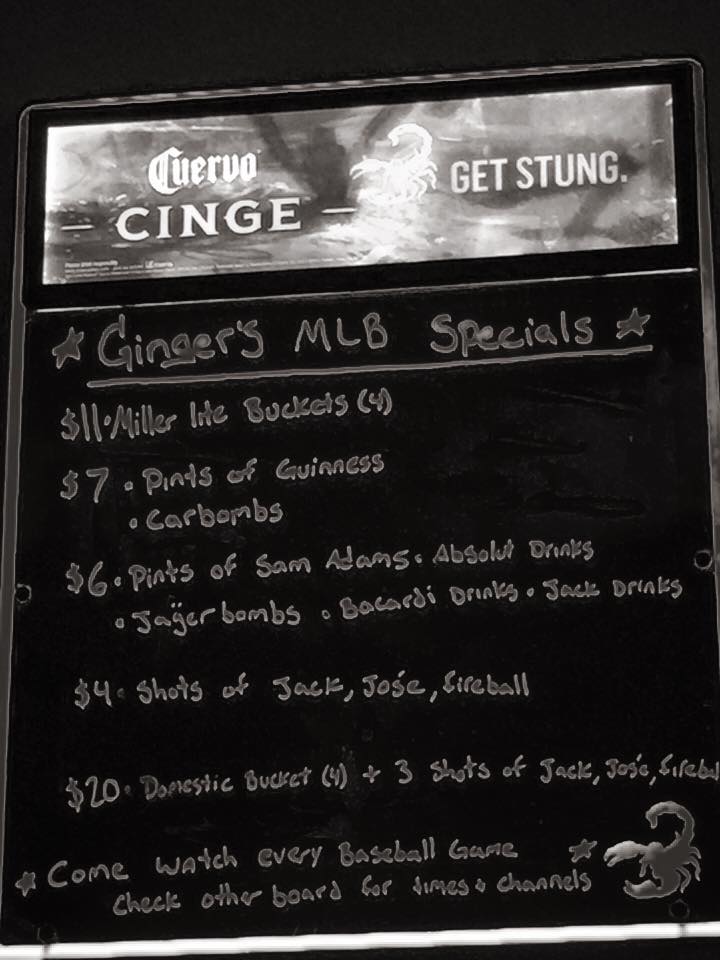 Cuervo
CINGE
GET STUNG.
★ Ginger's MLB Specials ★
$11•Miller lite Buckets (4)
$7 • Pints of Guinness
• Carbombs
$6 • Pints of Sam Adams • Absolut Drinks
• Jägerbombs • Bacardi Drinks • Jack Drinks
$4 • Shots of Jack, José, fireball
$20 • Domestic Bucket (4) + 3 Shots of Jack, José, firebal
★ Come watch every Baseball Game ★
Check other board for times + channels